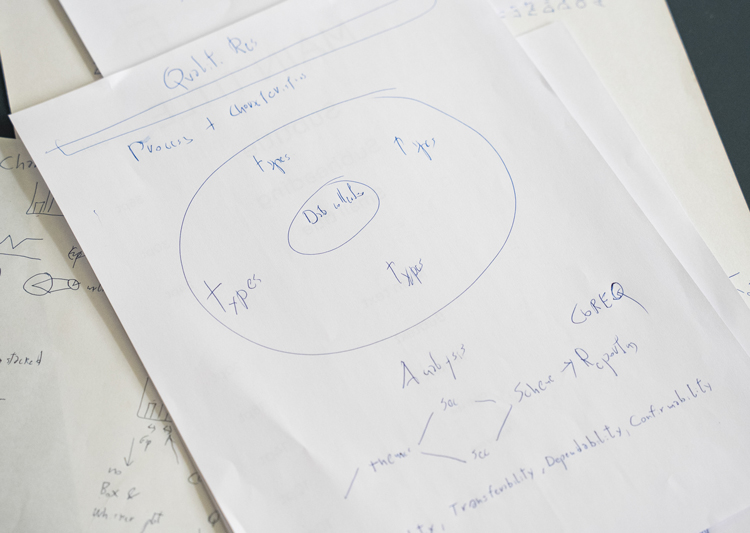 Qualit. Res
Process + characteristics
types types
Data collection
types types
COREQ
Analysis
Sec Scheme → Reporting
them
Sec
Transferibility, Dependability, Confirmability
Cha
stacked
no
Box &
Whisker plot